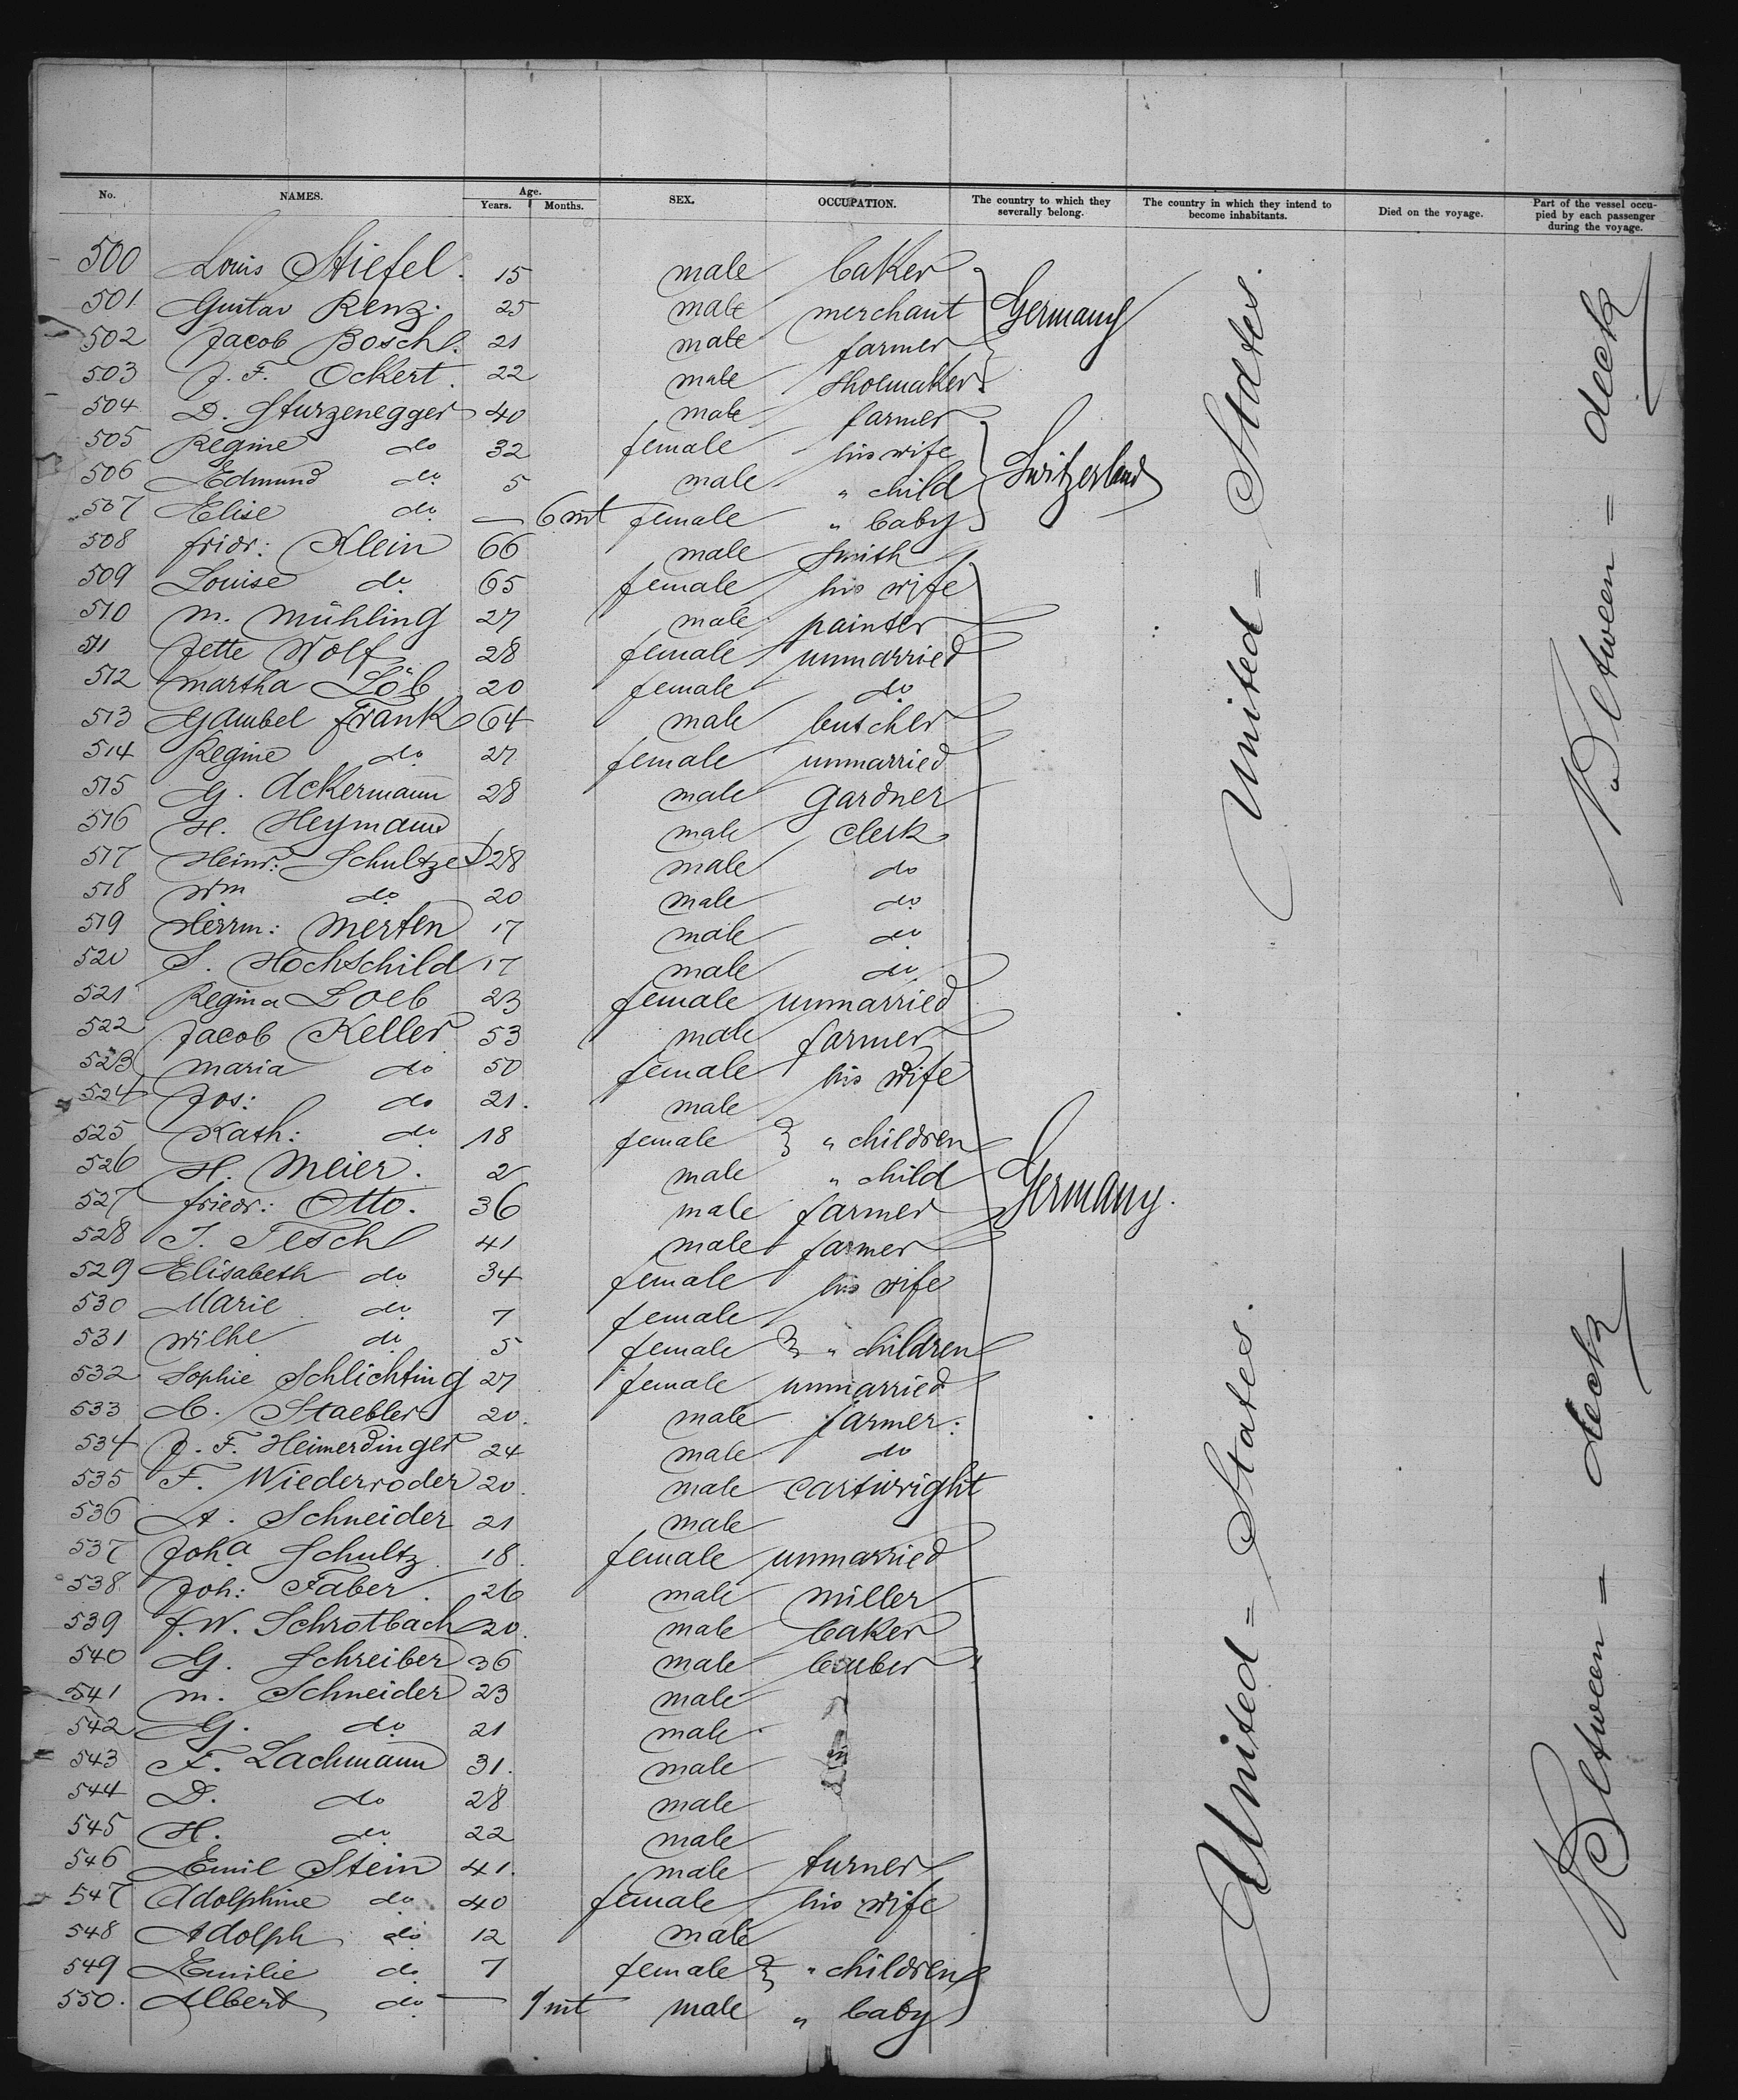 No. NAMES. Age. Years. Months. SEX. OCCUPATION. The country to which they severally belong. The country in which they intend to become inhabitants. Died on the voyage. Part of the vessel occupied by each passenger during the voyage.
500 Louis Stiefel. 15 male baker
501 Gustav Renz. 25 male merchant Germany
502 Jacob Bosch. 21 male farmer
503 J. F. Ockert. 22 male shoemaker
504 D. Sturzenegger 40 male farmer
505 Regine do 32 female his wife
506 Edmund do 5 male " child Switzerland
507 Elise do — 6 mt female " baby
508 Fridr: Klein 66 male smith
509 Louise do 65 female his wife
510 M. Mühling 27 male painter
511 Jette Wolf 28 female unmarried
512 Martha Löb 20 female do
513 Gambel Frank 64 male butcher
514 Regine do 27 female unmarried
515 G. Ackermann 28 male gardner
516 H. Heymann male clerk
517 Heinr: Schultze 28 male do
518 Wm do 20 male do
519 Herrm: Merten 17 male do
520 S. Hochschild 17 male do
521 Regina Loeb 23 female unmarried
522 Jacob Keller 53 male farmer
523 Maria do 50 female his wife
524 Jos: do 21. male
525 Kath: do 18 female " children
526 H. Meier. 2 male " child
527 Friedr: Otto. 36 male farmer Germany.
528 J. Tesch 41 male farmer
529 Elisabeth do 34 female his wife
530 Marie do 7 female
531 Wilhe do 5 female " children
532 Sophie Schlichting 27 female unmarried
533 C. Staebler 20. male farmer:
534 J. F. Heimerdinger 24 male do
535 F. Wiederroder 20. male cartwright
536 A. Schneider 21 male
537 Joha Schultz 18. female unmarried
538 Joh: Faber. 26 male miller
539 F. W. Schrotbach 20. male baker
540 G. Schreiber 36 male
541 M. Schneider 23 male
542 G. do 21 male
543 F. Lachmann 31. male
544 D. do 28 male
545 H. do 22 male
546 Emil Stein 41. male turner
547 Adolphine do 40 female his wife
548 Adolph do 12 male
549 Emilie do 7 female " children
550. Albert do — 1 mt male " baby
United = States.
United = States.
Between = deck
Between = deck